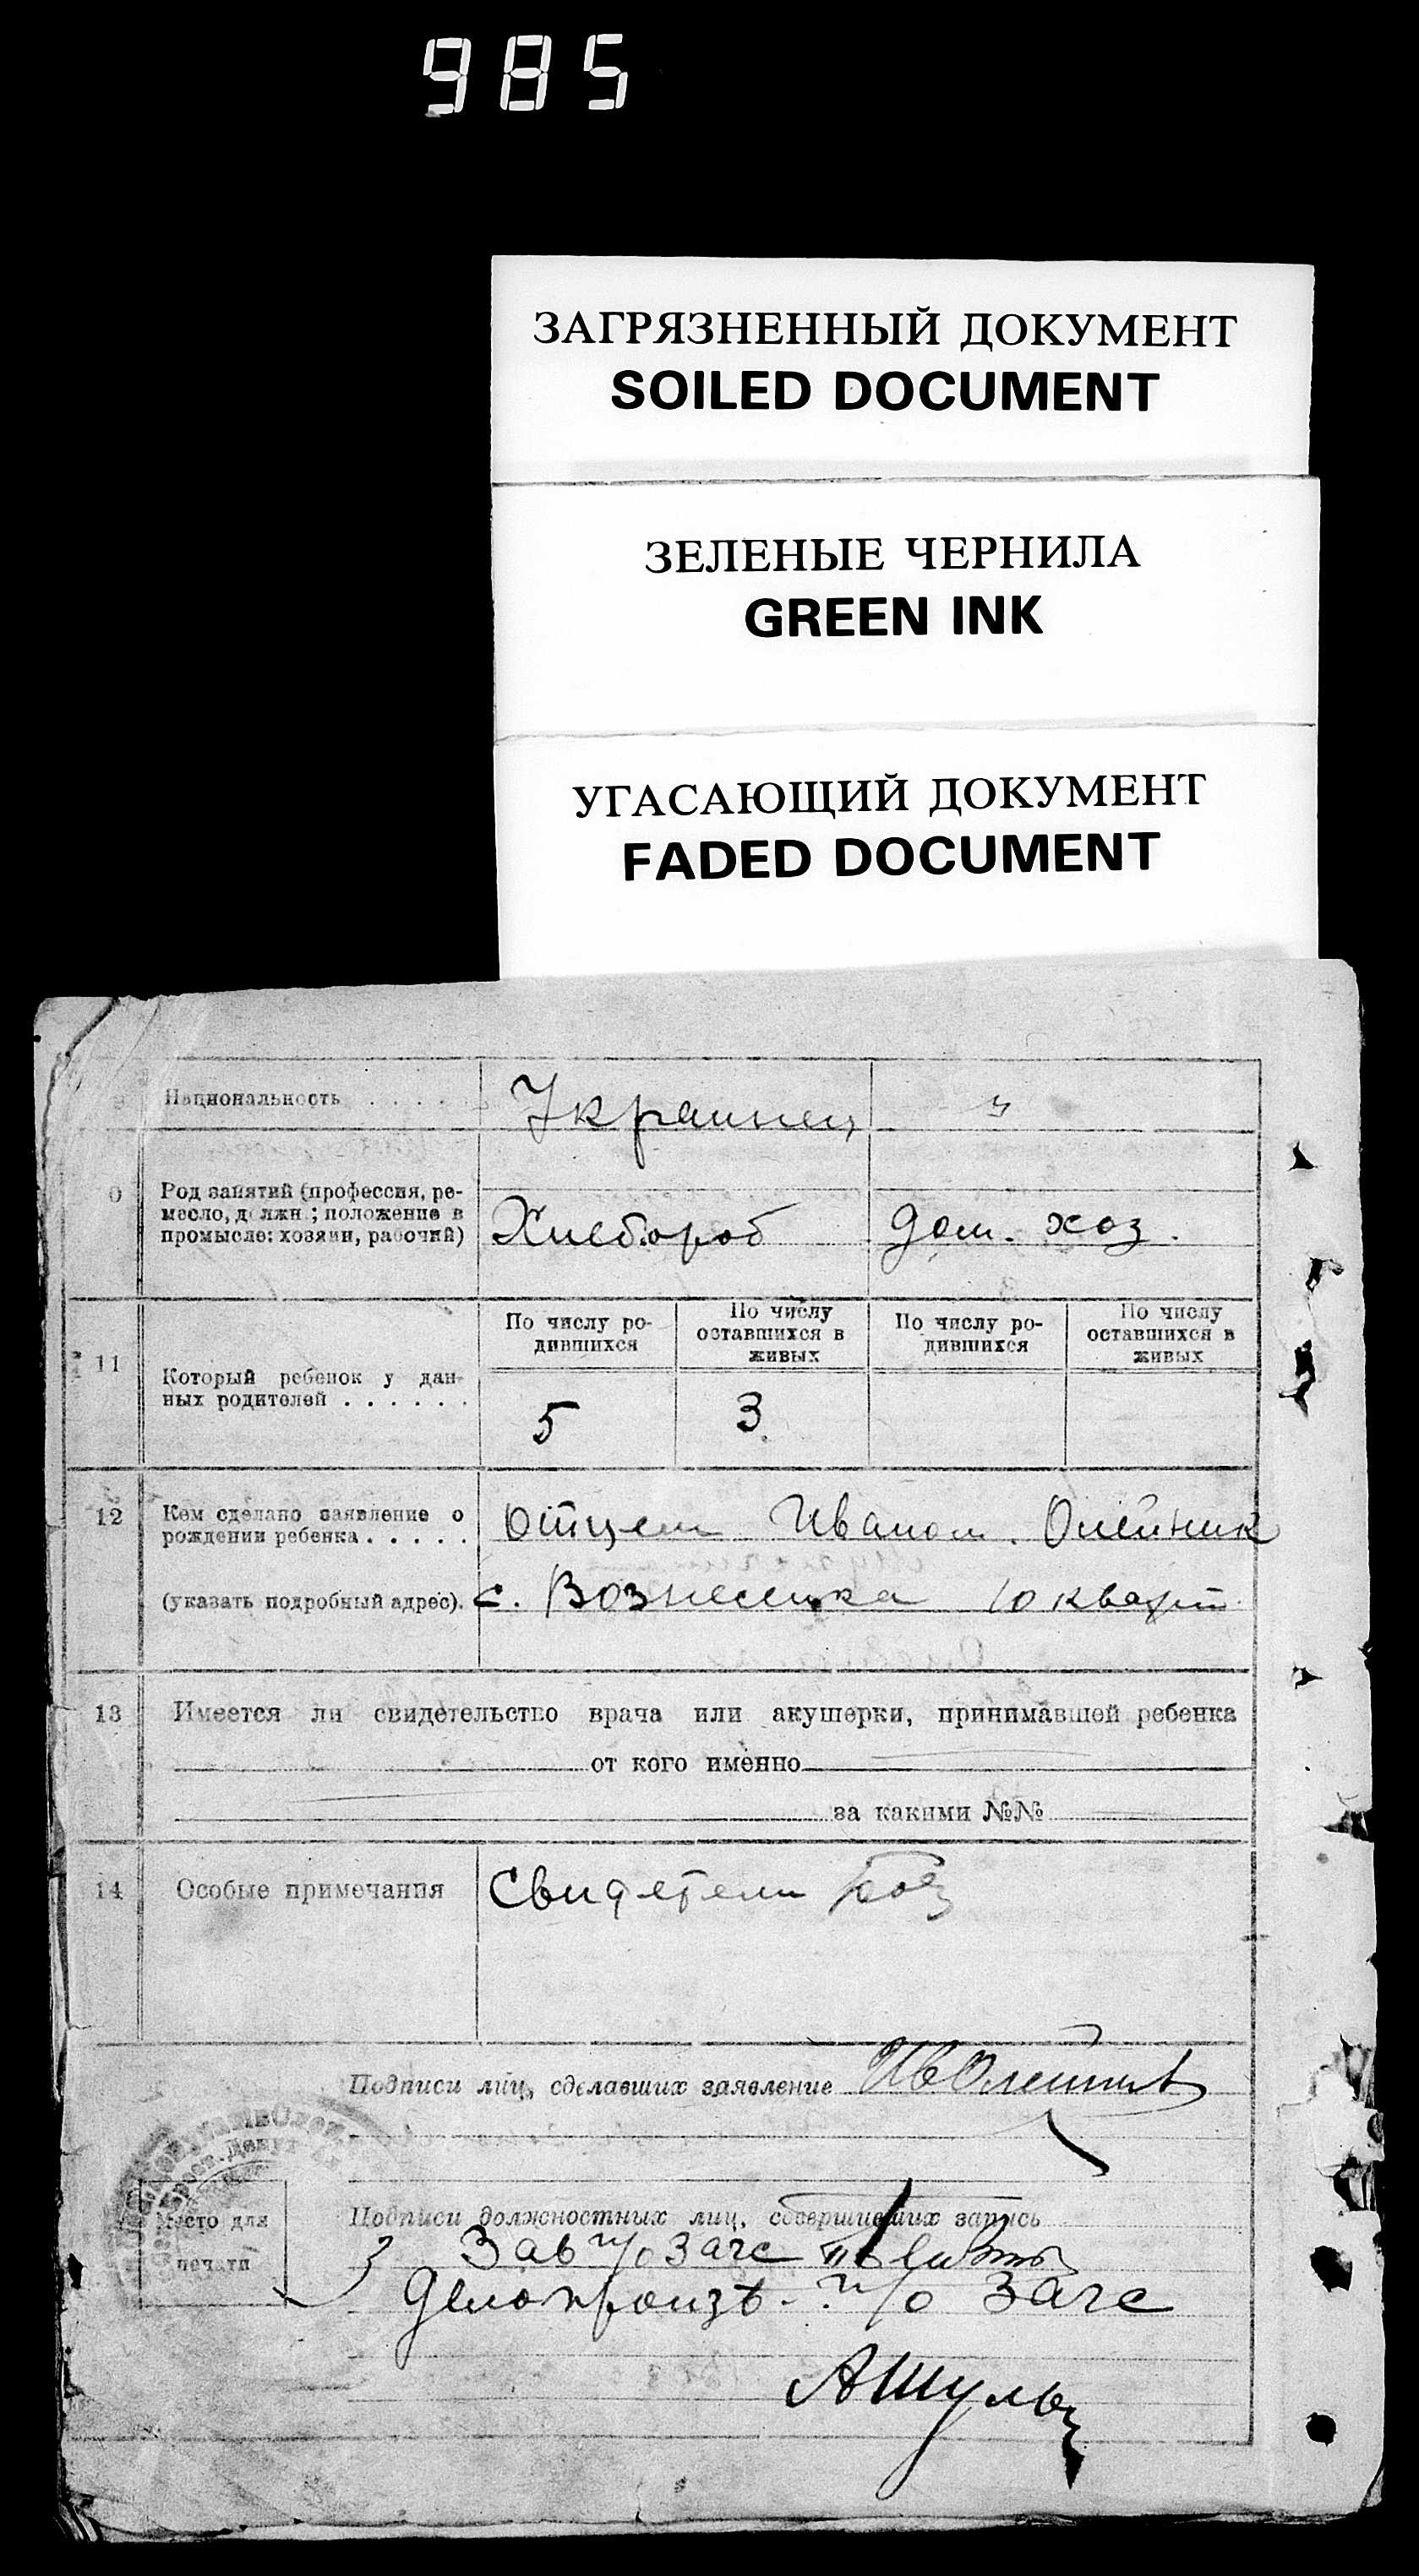 985
ЗАГРЯЗНЕННЫЙ ДОКУМЕНТ
SOILED DOCUMENT
ЗЕЛЕНЫЕ ЧЕРНИЛА
GREEN INK
УГАСАЮЩИЙ ДОКУМЕНТ
FADED DOCUMENT
Национальность . . . . . Украинец
Род занятий (профессия, ре-
месло, должн.; положение в
промысле: хозяин, рабочий)
Хлебороб дом. хоз.
11 Который ребенок у дан-
ных родителей . . . . . .
По числу ро-
дившихся
По числу
оставшихся в
живых
По числу ро-
дившихся
По числу
оставшихся в
живых
5 3
12 Кем сделано заявление о
рождении ребенка . . . . .
отцем Иваном Олейник
(указать подробный адрес). с. Вознесенка 10 кварт.
13 Имеется ли свидетельство врача или акушерки, принимавшей ребенка
от кого именно
за какими №№
14 Особые примечания Свидетели
Подписи лиц, сделавших заявление Ив Олейник
Место для
печати
Подписи должностных лиц, совершивших запись
Зав п/о Загс
Делопроизв. п/о Загс
АШульц